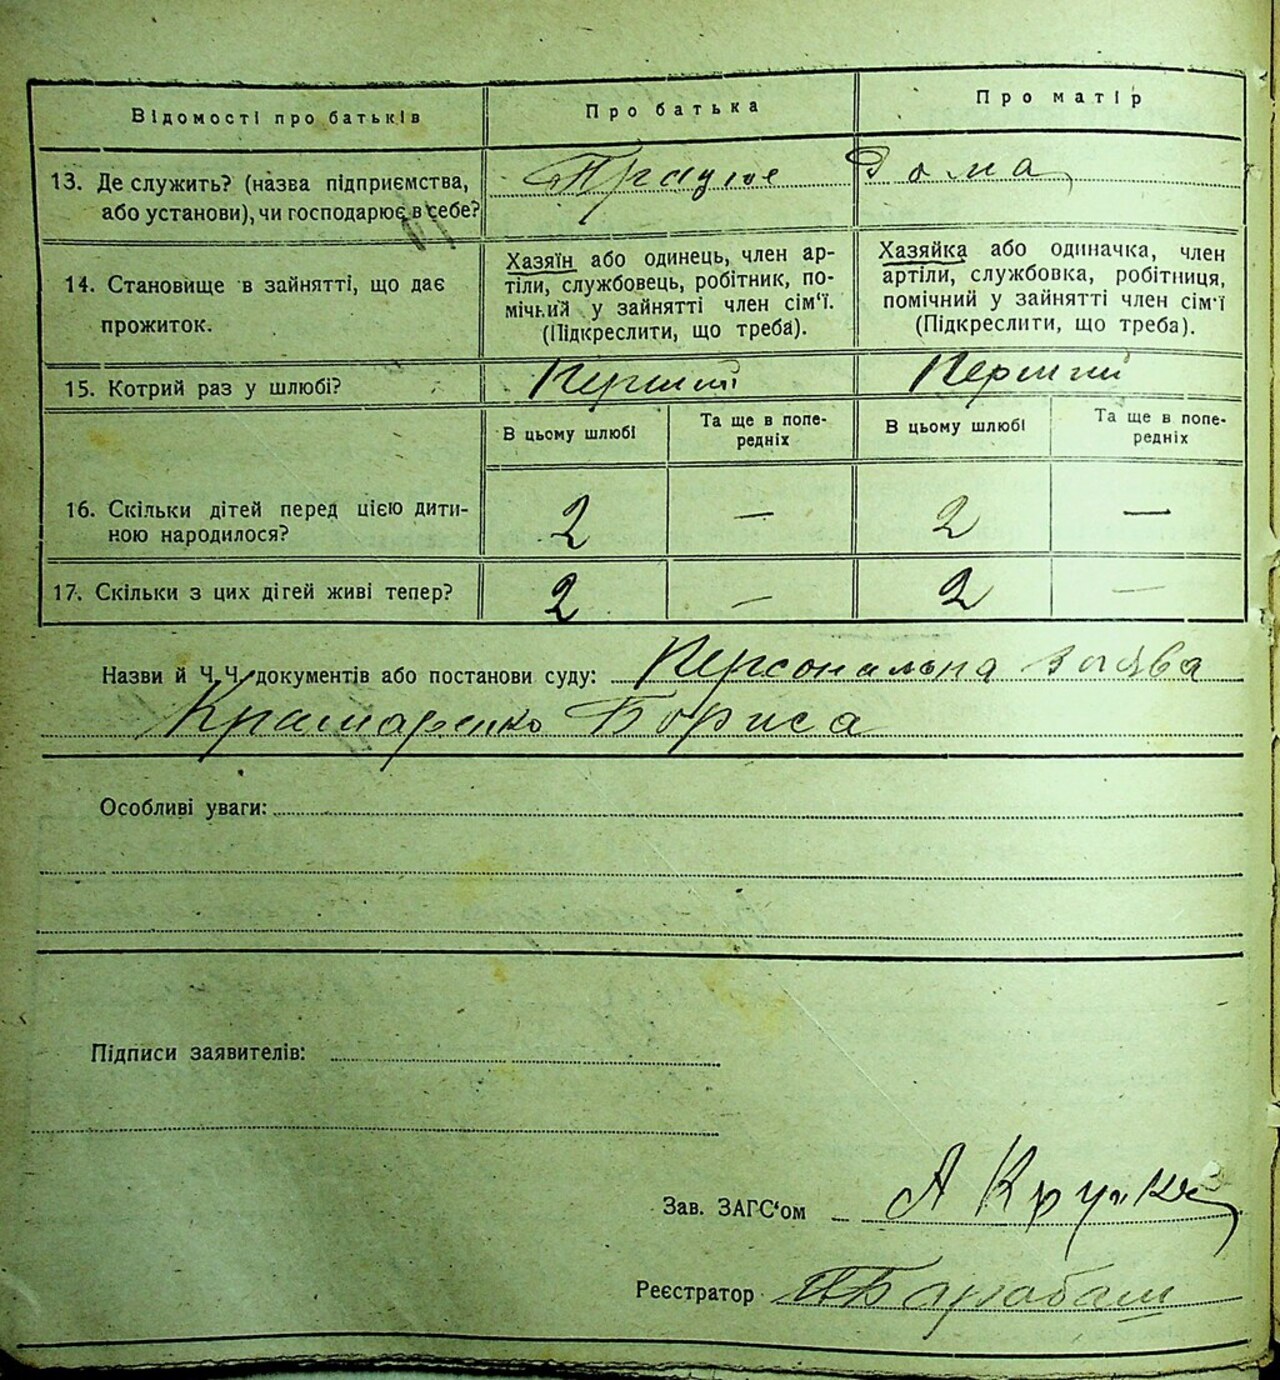 Відомості про батьків
Про батька
Про матір
13. Де служить? (назва підприємства,
або установи), чи господарює в себе?
Працює
Дома
14. Становище в зайнятті, що дає
прожиток.
Хазяїн або одинець, член ар-
тіли, службовець, робітник, по-
мічний у зайнятті член сім'ї.
(Підкреслити, що треба).
Хазяйка або одиначка, член
артіли, службовка, робітниця,
помічний у зайнятті член сім'ї
(Підкреслити, що треба).
15. Котрий раз у шлюбі?
Перший
Перший
В цьому шлюбі
Та ще в попе-
редніх
В цьому шлюбі
Та ще в попе-
редніх
16. Скільки дітей перед цією дити-
ною народилося?
2 — 2 —
17. Скільки з цих дітей живі тепер?
2 — 2 —
Назви й Ч.Ч. документів або постанови суду: Персональна заява
Крамаренко Бориса
Особливі уваги:
Підписи заявителів:
Зав. ЗАГС'ом А
Реєстратор Барабаш